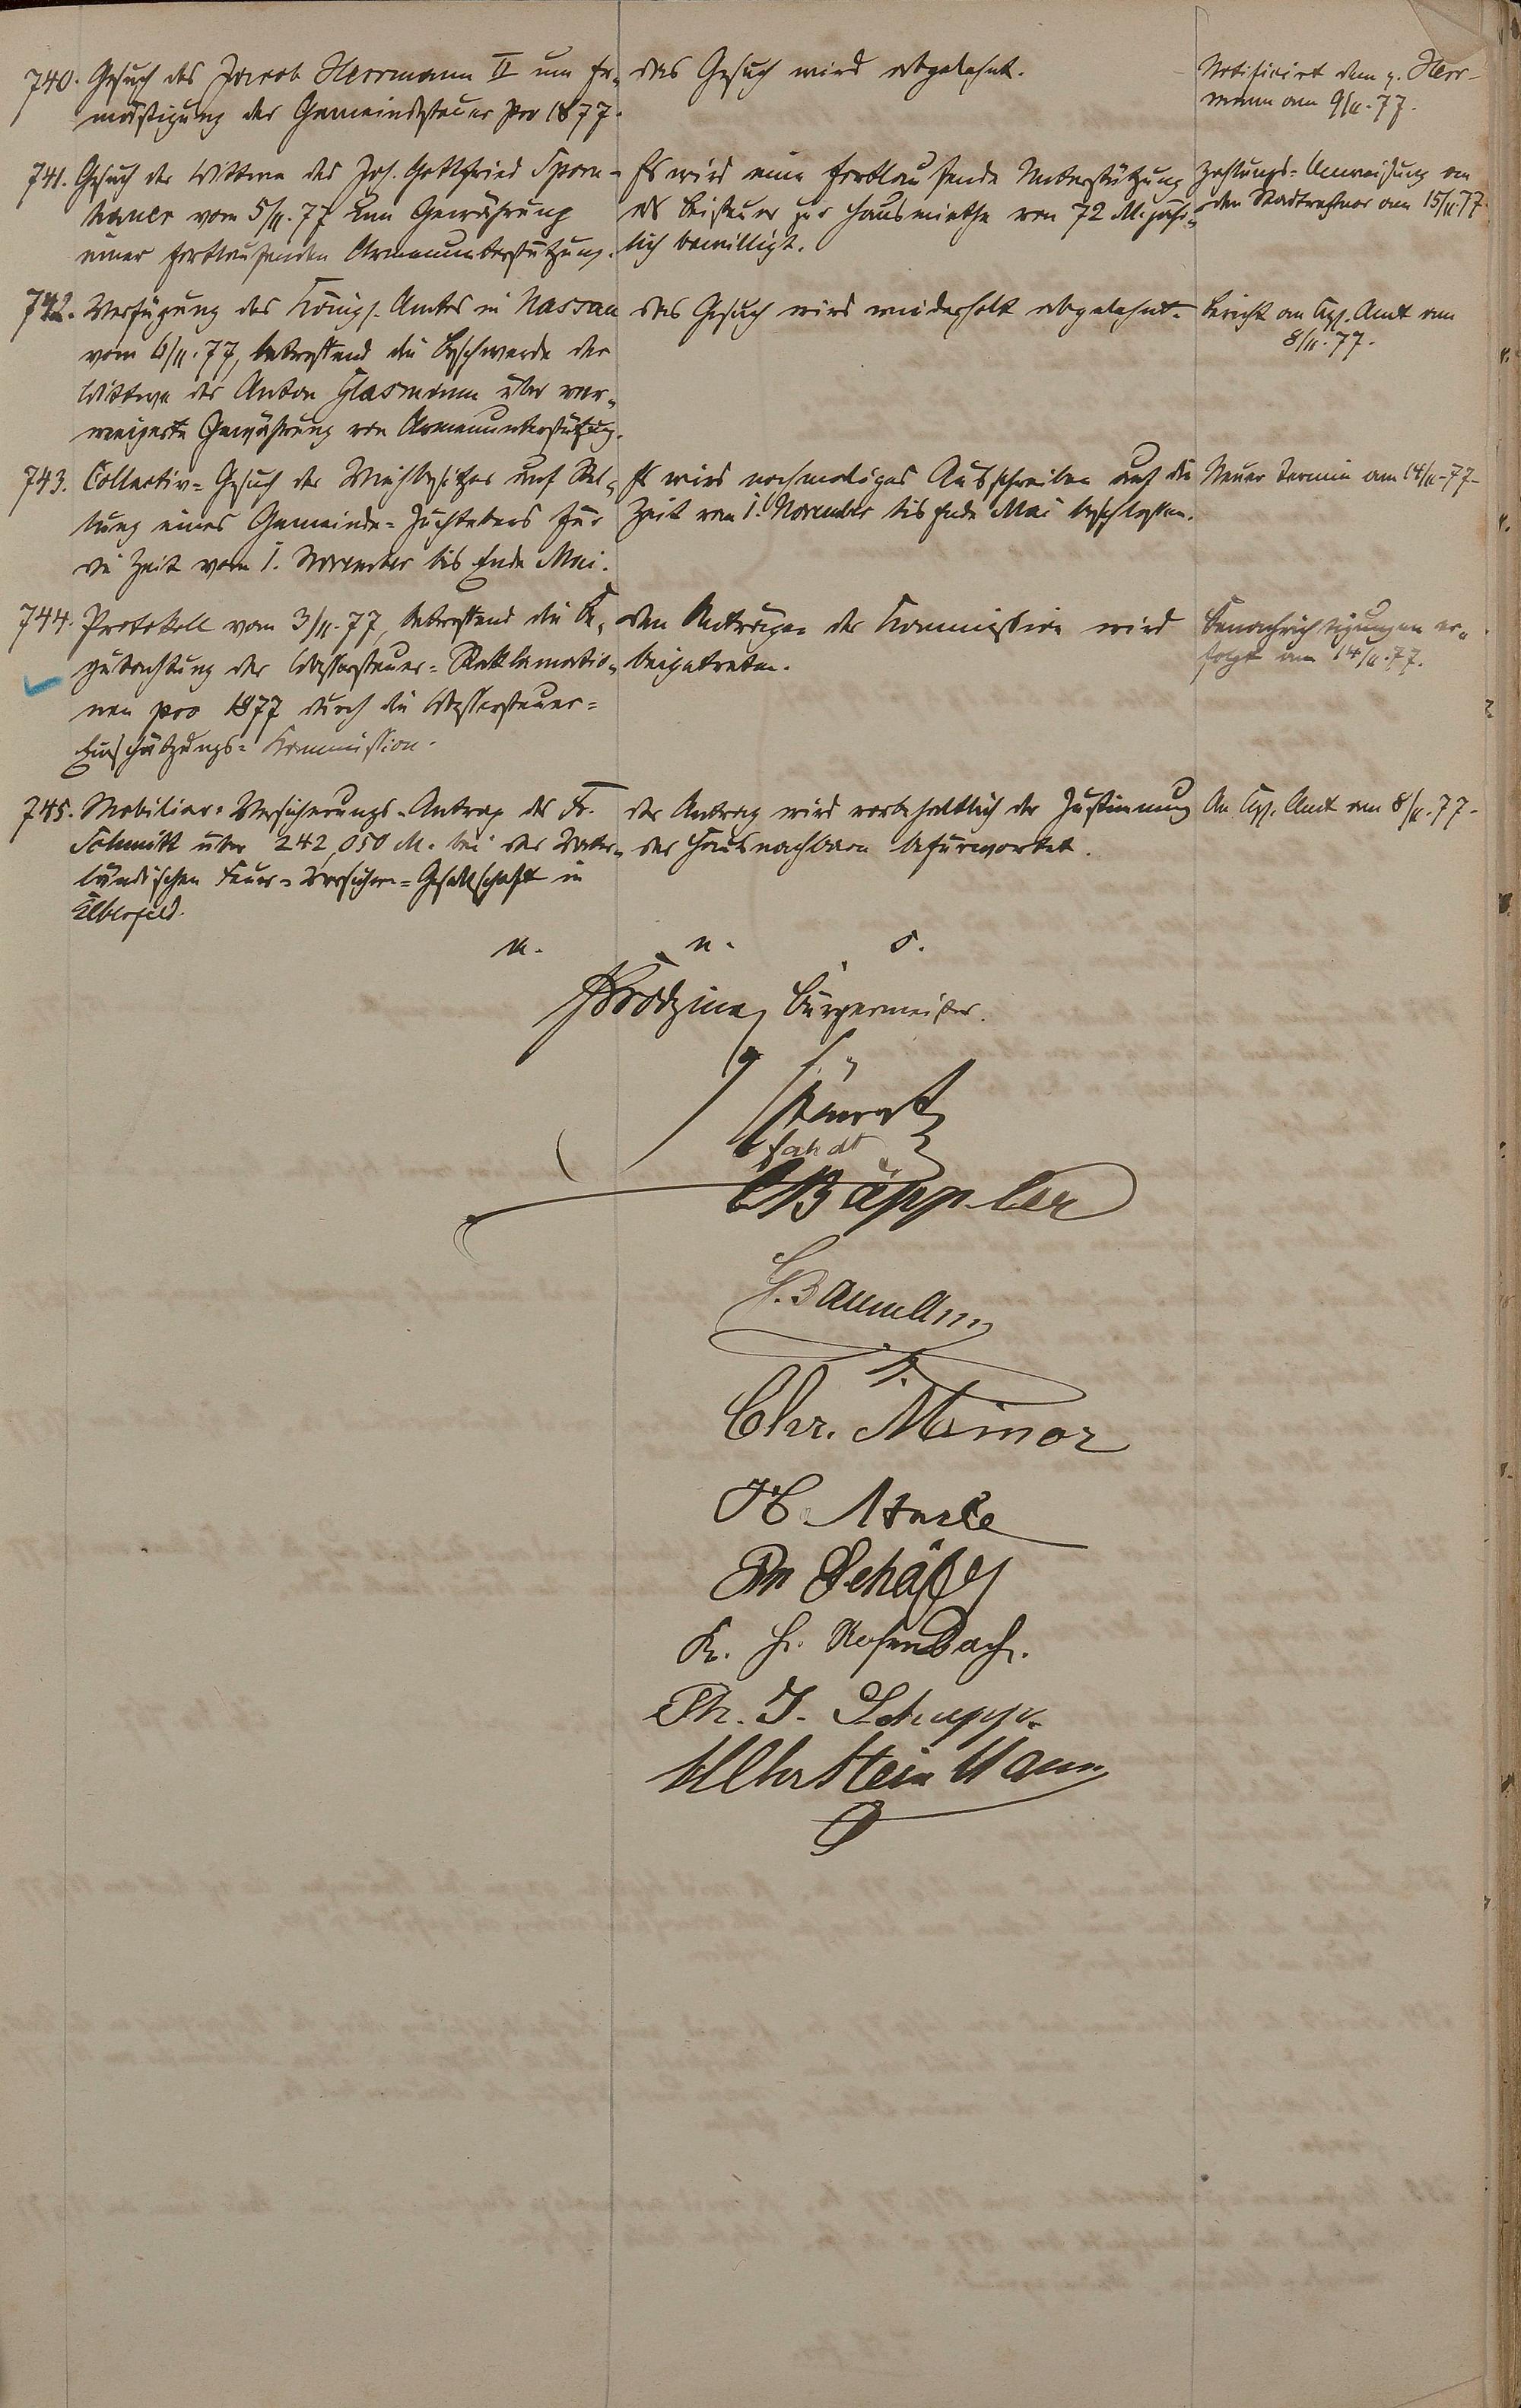 740. Gesuch des Jacob Herrmann II um Er-
mäßigung der Gemeindesteuer pro 1877.
das Gesuch wird abgelehnt.
Notificirt dem p. Herr-
mann am 9/11.77.
741. Gesuch der Wittwe des Joh. Gottfried
vom 5/11.77 um Gewährung
einer fortlaufenden Armenunterstützung.
Es wird eine fortlaufende Unterstützung
als Beisteuer zur Hausmiethe von 72 M. jähr-
lich bewilligt.
Zahlungs-Anweisung an
den Stadtrechner am 15/11.77
742. Verfügung des Königl. Amtes in Nassau
vom 6/11.77, betreffend die Beschwerde der
Wittwe des Anton Glasmann über ver-
weigerte Gewährung von Armenunterstützung.
das Gesuch wird wiederholt abgelehnt.
Bericht an Kgl. Amt am
8/11.77.
743. Collectiv-Gesuch der Viehbesitzer auf Hal-
tung eines Gemeinde-Zuchtebers für
die Zeit vom 1. November bis Ende Mai.
Es wird nochmaliges Ausschreiben auf die
Zeit vom 1. November bis Ende Mai beschlossen.
Neuer Termin am 14/11.77.
744. Protokoll vom 3/11.77, betreffend die Be-
gutachtung der Wassersteuer-Reklamatio-
nen pro 1877 durch die Wassersteuer-
Einschätzungs-Kommission.
den Anträgen der Kommission wird
beigetreten.
Benachrichtigungen er-
folgt am 14/11.77.
745. Mobiliar-Versicherungs-Antrag des Fr.
Schmitt über 242,050 M. bei der Vater-
ländischen Feuer-Versicher.-Gesellschaft in
Elberfeld.
der Antrag wird vorbehaltlich der Zustimmung
der Hausnachbarn befürwortet.
An Kgl. Amt am 8/11.77.
u. n. s.
Bürgermeister.
Bäppler
Baumann
Chr. Minor
H.
Ph Schäfer
Rosenbach.
Ph. J. Schupp.